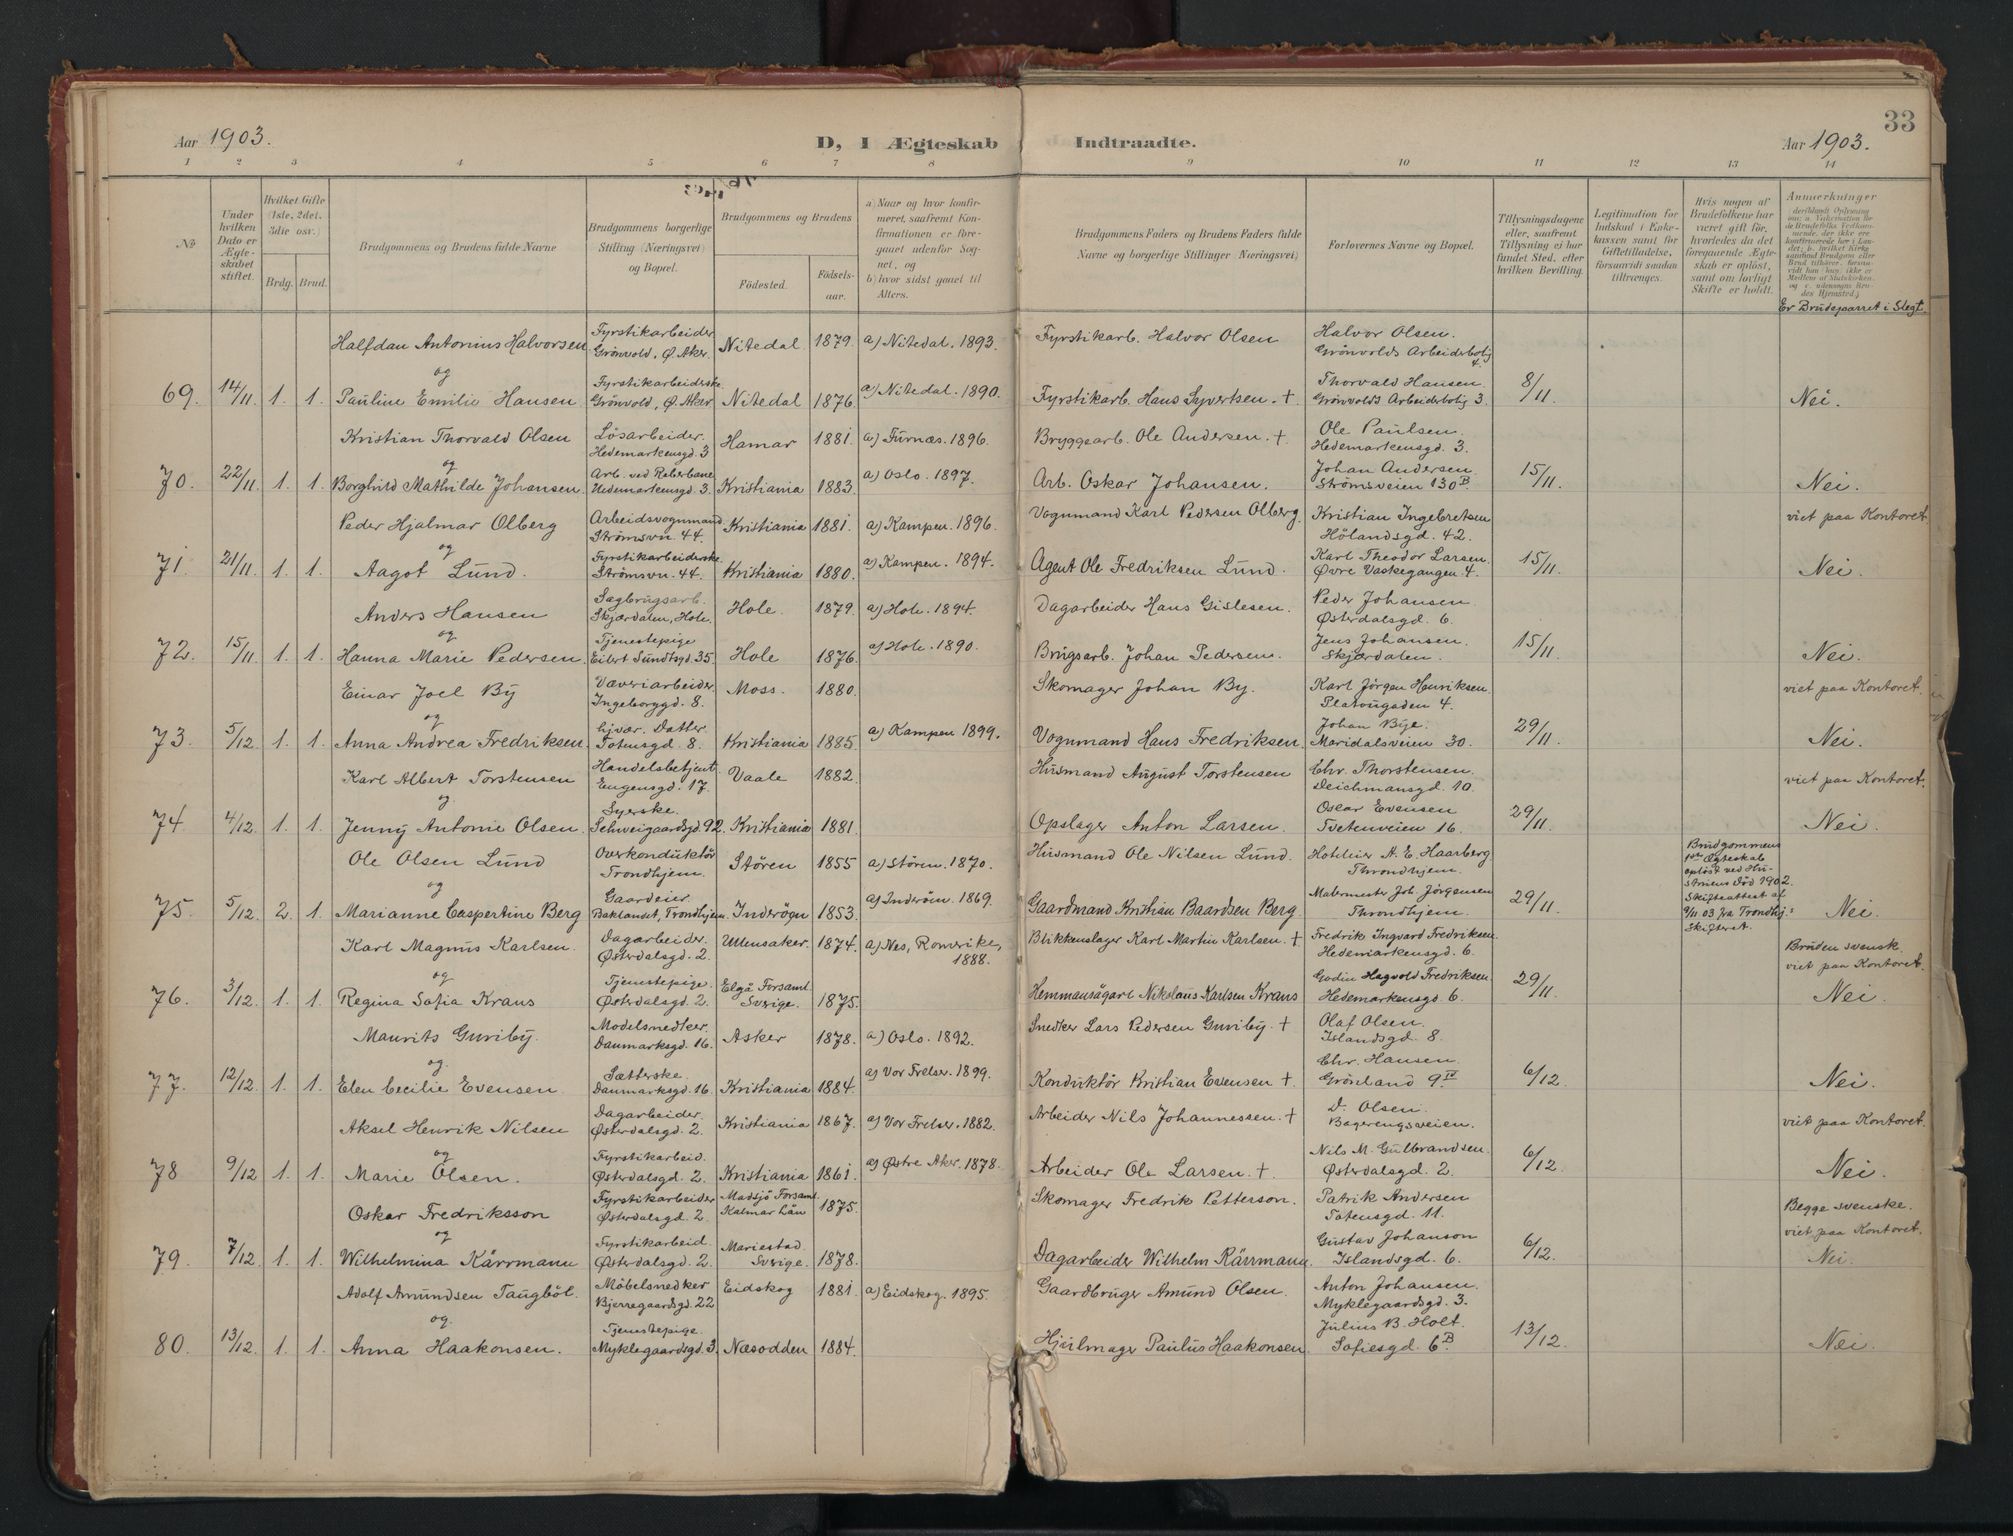 33
Aar 1903. D, I Ægteskab Indtraadte. Aar 1903.
1 2 3 4 5 6 7 8 9 10 11 12 13 14
No
Under hvilken Dato er Ægteskabet stiftet.
Hvilket Gifte (1ste, 2det, 3die osv.)
Brdg. Brud.
Brudgommens og Brudens fulde Navne
Brudgommens borgerlige Stilling (Næringsvei) og Bopæl.
Brudgommens og Brudens
Fødested. Fødselsaar.
a) Naar og hvor konfirmeret, saafremt Konfirmationen er foregaaet udenfor Sognet, og
b) hvor sidst gaaet til Alters.
Brudgommens Faders og Brudens Faders fulde Navne og borgerlige Stillinger (Næringsvei)
Forlovernes Navne og Bopæl.
Tillysningsdagene eller, saafremt Tillysning ei har fundet Sted, efter hvilken Bevilling.
Legitimation for Indskud i Enkekassen samt for Giftetilladelse, forsaavidt saadan tiltrænges.
Hvis nogen af Brudefolkene har været gift før, hvorledes da det foregaaende Ægteskab er opløst, samt om lovligt Skifte er holdt.
Anmerkninger
Er Brudeparret i Slegt.
Halfdan Antonius Halvorsen Fyrstikarbeider Grønvold, Ø. Aker. Nitedal 1879. a) Nitedal. 1893. Fyrstikarb. Halvor Olsen Halvor Olsen. Grönvolds Arbeiderbolig 4.
og
69. 14/11. 1. 1. Pauline Emilie Hansen Fyrstikarbeiderske. Grønvold, Ø. Aker Nitedal 1876. a) Nitedal. 1890. Fyrstikarb. Hans Syvertsen. + Thorvald Hansen. Grønvolds Arbeiderbolig 3. 8/11. Nei.
Kristian Thorvald Olsen Løsarbeider. Hedemarkensgd. 3 Hamar 1881. a) Furnæs. 1896. Bryggearb. Ole Andersen. + Ole Paulsen. Hedemarkensgd. 3.
og
70. 22/11. 1. 1. Borghild Mathilde Johansen Arb. ved Reberbane Hedemarkensgd. 3. Kristiania 1883. a) Oslo. 1897. Arb. Oskar Johansen. Johan Andersen. Strømsveien 130B. 15/11. Nei.
Peder Hjalmar Olberg Arbeidsvognmand Strømsvn. 44. Kristiania 1881. a) Kampen. 1896. Vognmand Karl Pedersen Olberg. Kristian Ingebretsen Hölandsgd. 42. viet paa Kontoret.
og
71. 21/11. 1. 1. Aagot Lund. Fyrstikarbeiderske. Strømsvn. 44. Kristiania 1880. a) Kampen. 1894. Agent Ole Fredriksen Lund. Karl Theodor Larsen. Øvre Vaskegangen 4. 15/11. Nei.
Anders Hansen Sagbrugsarb. Skjærdalen, Hole. Hole. 1879. a) Hole. 1894. Dagarbeider Hans Gislesen. Peder Johansen. Østerdalsgd. 6.
og
72. 15/11. 1. 1. Hanna Marie Pedersen Tjenestepige Eilert Sundtsgd. 35. Hole 1876. a) Hole. 1890. Brugsarb. Johan Pedersen. Jens Johansen. Skjærdalen. 15/11. Nei.
Einar Joel By Væveriarbeider. Ingeborggd. 8. Moss. 1880. Skomager Johan By. Karl Jörgen Henriksen. Platougaden 4. viet paa Kontoret.
og
73. 5/12. 1. 1. Anna Andrea Fredriksen hjvær. Datter. Totensgd. 8. Kristiania 1885. a) Kampen 1899. Vognmand Hans Fredriksen. Johan Bye. Maridalsveien 30. 29/11. Nei.
Karl Albert Torstensen Handelsbetjent Eugensgd. 17. Vaale 1882. Husmand August Torstensen Chr. Thorstensen. Deichmansgd. 10. viet paa Kontoret.
og
74. 4/12. 1. 1. Jenny Antonie Olsen. Syerske. Schweigaardsgd. 92. Kristiania 1881. Opslager Anton Larsen. Oscar Evensen Tvetenveien 16. 29/11. Nei.
Ole Olsen Lund Overkonduktör Trondhjem. Stören 1855 a) Stören. 1870. Husmand Ole Nilsen Lund. Hoteleier A. E. Haarberg. Throndhjem. Brudgommens 1ste Ægteskab opløst ved Hustruens Död 1902. Skifteattest af 9/11 03 fra Trondhj: Skifteret.
og
75. 5/12. 2. 1. Marianne Caspertine Berg Gaardeier. Baklandet, Trondhjem. Inderöyn 1853. a) Inderöen. 1869. Gaardmand Kristian Baardsen Berg. Malermester Joh. Jörgensen Throndhjem. 29/11. Nei.
Karl Magnus Karlsen. Dagarbeider. Østerdalsgd. 2. Ullensaker. 1874. a) Nes, Romerike. 1888. Blikkenslager Karl Martin Karlsen. + Fredrik Ingvard Fredriksen. Hedemarkensgd. 6. Bruden svensk. viet paa Kontoret.
og
76. 3/12. 1. 1. Regina Sofia Kraus Tjenestepige. Østerdalsgd. 2. Elgå Forsaml. Sverige. 1875. Hemmansägare Nikolaus Karlsen Kraus Hagvold Fredriksen Hedemarkensgd. 6. 29/11. Nei.
Maurits Guriby. Modelsnedker. Danmarksgd. 16. Asker 1878. a) Oslo. 1892. Snedker Lars Pedersen Guriby. + Olaf Olsen. Islandsgd. 8.
og.
77. 12/12. 1. 1. Elen Cecilie Evensen Sætterske. Danmarksgd. 16 Kristiania 1884. a) Vor Frelser. 1899. Konduktör Kristian Evensen + Chr. Hansen. Grönland 9 IV 6/12. Nei.
Aksel Henrik Nilsen Dagarbeider. Østerdalsgd. 2. Kristiania 1867. a) Vor Frelser. 1882. Arbeider Nils Johannessen. + D. Olsen. Bagerengsveien. viet paa Kontoret.
og
78 9/12 1. 1. Marie Olsen. Fyrstikarbeid. Østerdalsgd. 2. Kristiania 1861. a) Østre Aker. 1878. Arbeider Ole Larsen. + Nils M. Gulbrandsen. Østerdalsgd. 2 6/12. Nei.
Oskar Fredriksson Fyrstikarbeider Østerdalsgd. 2. Madsjö Forsaml. Kalmar Län 1875. Skomager Fredrik Petterson. Patrik Andersen Totensgd. 11. Begge svenske. viet paa Kontoret.
og
79. 7/12. 1. 1. Wilhelmina Kärrmann Fyrstikarbeid. Østerdalsgd. 2. Mariestad. Sverige. 1878. Dagarbeider Wilhelm Kärrmann. Gustav Johanson Islandsgd. 6. 6/12. Nei.
Adolf Amundsen Taugböl. Möbelsnedker Bjerregaardsgd. 22 Eidskog 1881 a) Eidskog. 1895. Gaardbruger Amund Olsen. Anton Johansen. Myklegaardsgd. 3.
og.
80. 13/12. 1. 1. Anna Haakonsen. Tjenestepige. Myklegaardsgd. 3. Næsodden 1884. Hjulmager Paulus Haakonsen. Julius B. Holt. Sofiesgd. 6B 13/12. Nei.